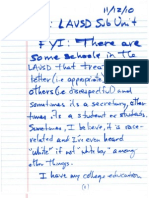 11/12/10
: LAUSD Sub Unit
FYI: There are
some schools in the
LAUSD that treat
better (i.e. appropriate)
others (i.e. disrespectful) and
sometimes its a secretary, other
times its a student or students.
Sometimes, I believe, it is race-
related and I've even heard
"white" if not "white boy," among
other things.
I have my college education
(1)